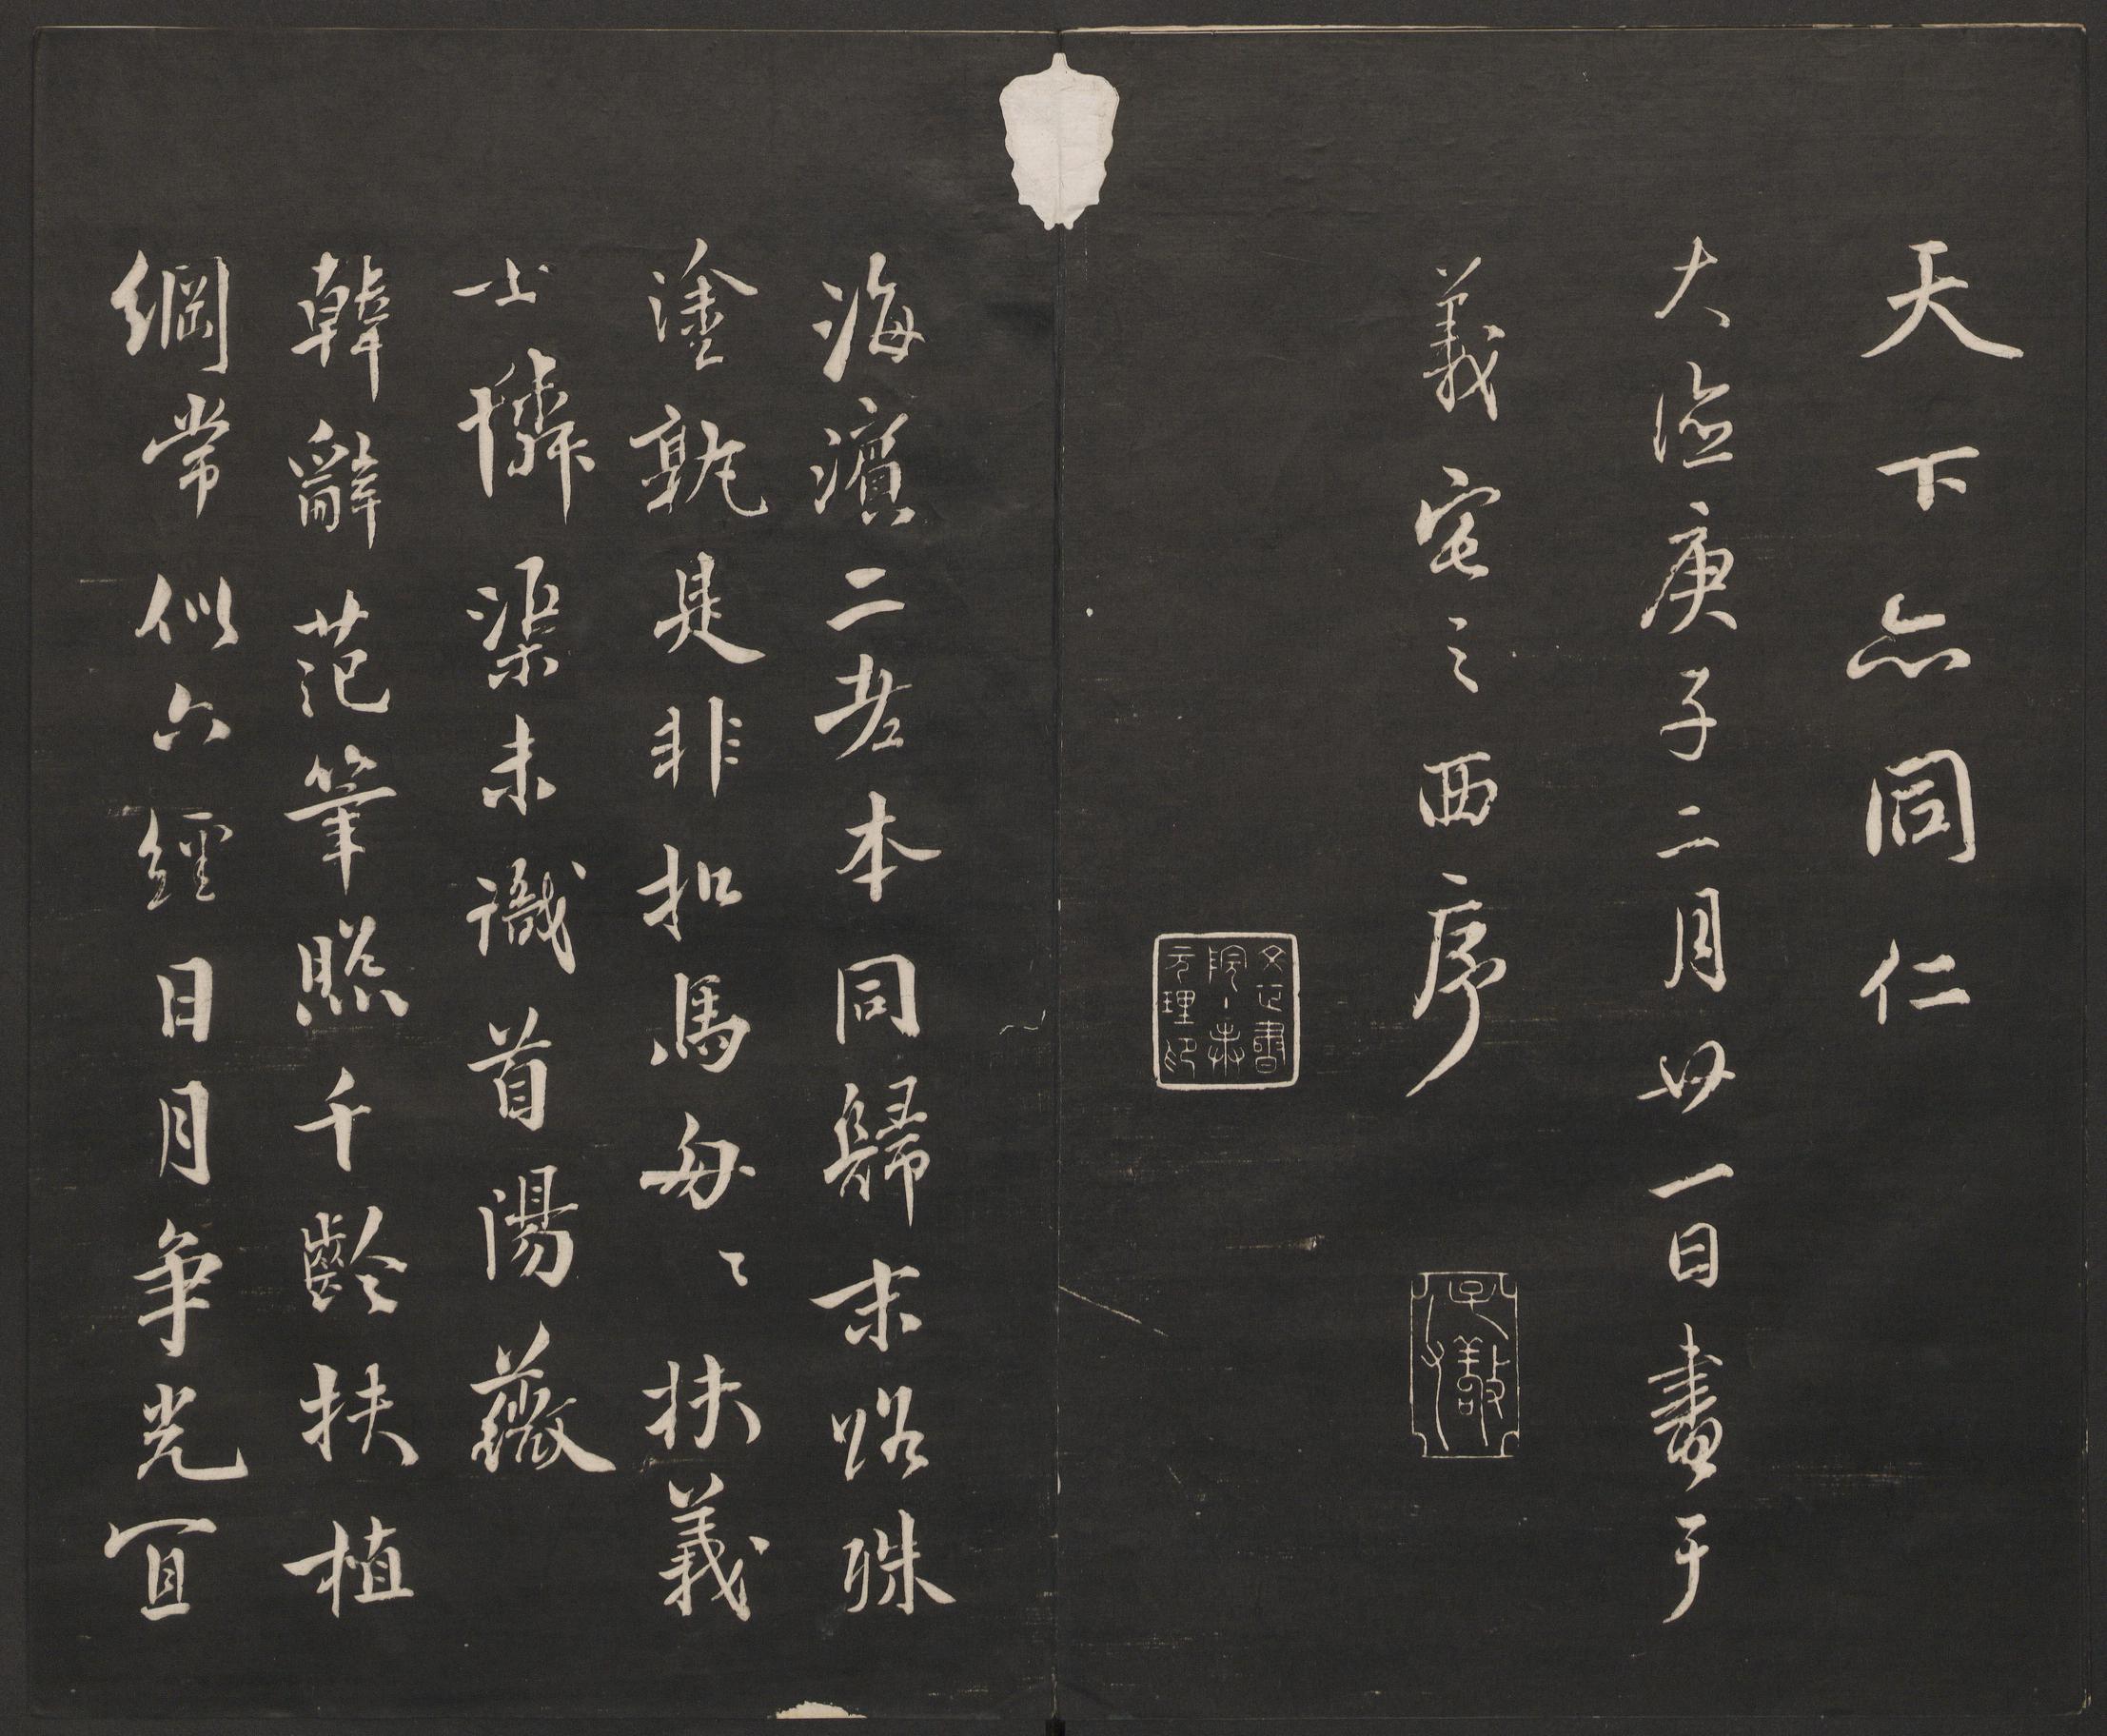 天下亦同仁
大德庚子二月廿一日書于
義宅之西序
文正書院主奉
海濱二老本同歸末路殊
塗孰是非扣馬匆〻扶義
士憐渠未識首陽薇
韓辭范筆照千齡扶植
綱常似六經日月爭光宜